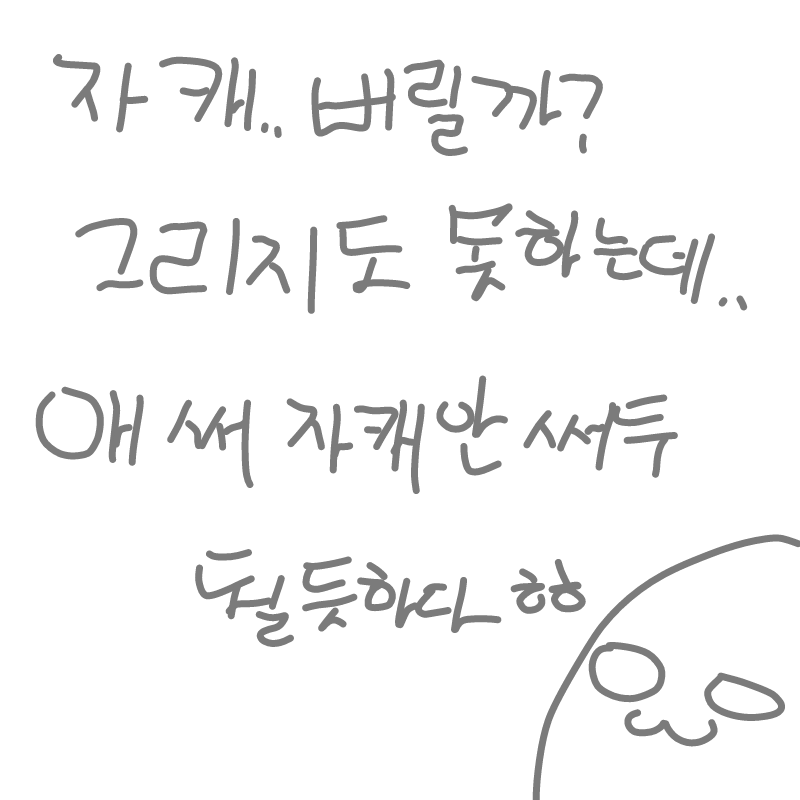 자캐.. 버릴까?
그리지도 못하는데..
애써 자캐안써두
될듯하다 ㅎㅎ